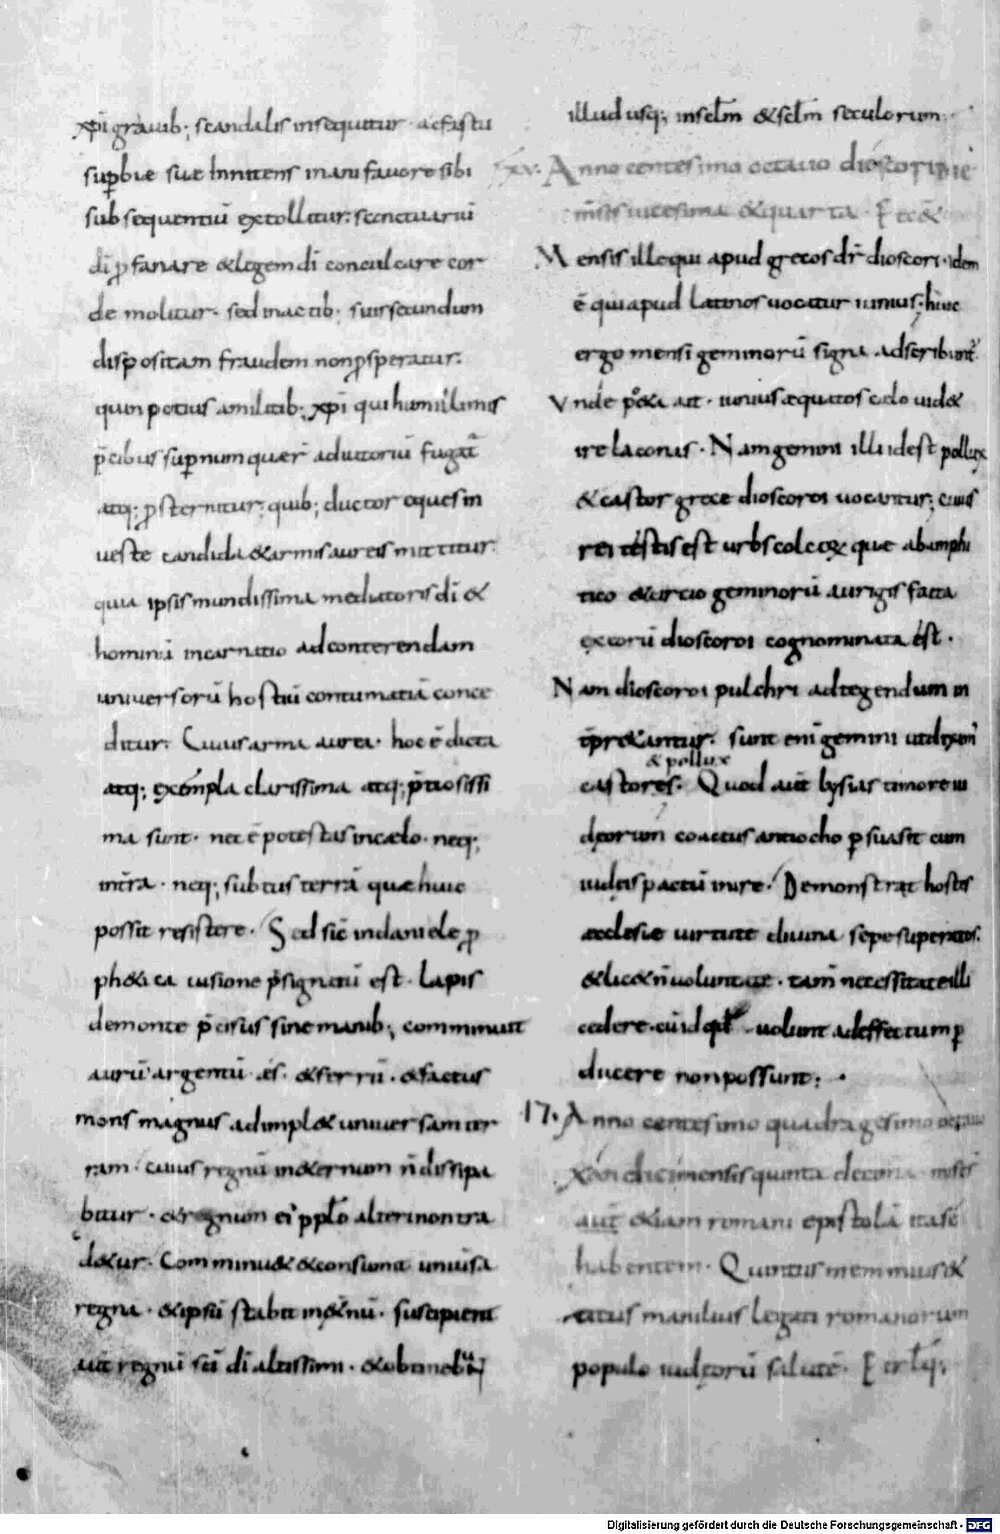 xp̅i grauib; scandalis insequitur ac fastu
sup̱bie sue innitens inani fauore sibi
subsequentiū extollitur; sanctuariū
dī ꝓfanare & legem dī conculcare cor
de molitur · sed in actib; suis secundum
dispositam fraudem non ꝓsperatur.
quin potius a militib; xp̅i qui humillimis
p̄cibus sup̱num quaer̄ adiutoriū fugat̄
atq; ꝓsternitur; quib; ductor eques in
ueste candida & armis aureis mittitur
quia ipsis mundissima mediatoris dī &
hominū incarnatio ad conterendam
uniuersorū hostiū contumatiā conce
ditur. Cuius arma aurea · hoc ē dicta
atq; exempla clarissima atq; p̄tiosissi
ma sunt · nec ē potestas in caelo · neq;
in terra · neq; subtus terrā quae huic
possit resistere. Sed sic̄ in daniele ꝓ
ph&ica uisione p̄signatū est · Lapis
de monte p̄cisus sine manib; comminuit
aurū argentū aes · & ferrū · & factus
mons magnus adimpl&uniuersam ter
ram · cuius regnū in &ernum n̄ dissipa
bitur · & regnum ei' ppl̄o alteri non tra
d&ur · Comminu& & consum& uniūsa
regna · & ipsū stabit in &nū · suscipient
aut̄ regnū sc̄i dī altissimi · & obtinebūt
illud usq; in scl̄m & scl̄m seculorum.
xv. Anno centesimo octauo dioscori die
mensis uicesima & quarta · Et c&
Mensis ille qui apud grecos dr̄ dioscori · idem
ē qui apud latinos uocatur iunius · huic
ergo mensi geminorū signa adscribunt'
Vnde po&a ait · unius aequatos caelo uid&
ire laconas · Nam gemini illi idest pollux
& castor grece dioscoroi uocantur; cuius
rei testis est urbs colcorum que ab amphi
tico & circio geminorū aurigis facta
ex eorū dioscoroi cognominata est ·
Nam dioscoroi pulchri ad tegendum in
t̄pr&antur. sunt eni gemini ut dixim'
castores & pollux. Quod aut̄ lysias timore iu
deorum coactus antiocho p̱suasit cum
iudeis pactū inire · Demonstrat hostes
aeclesiae uirtute diuina sepe superatos.
& lic& n̄ uoluntate · tam̄ necessitate illi
cedere · cū id qd̄ uolunt ad effectum p̱
ducere non possunt; ·
17. Anno centesimo quadragesimo octauo
xandici mensis quinta decima · miser̄
aut̄ &iam romani epistolā ita se
habentem · Quintus memmius &
titus manilius legati romanorum
populo iudeorū salutē · Et rl̄q;